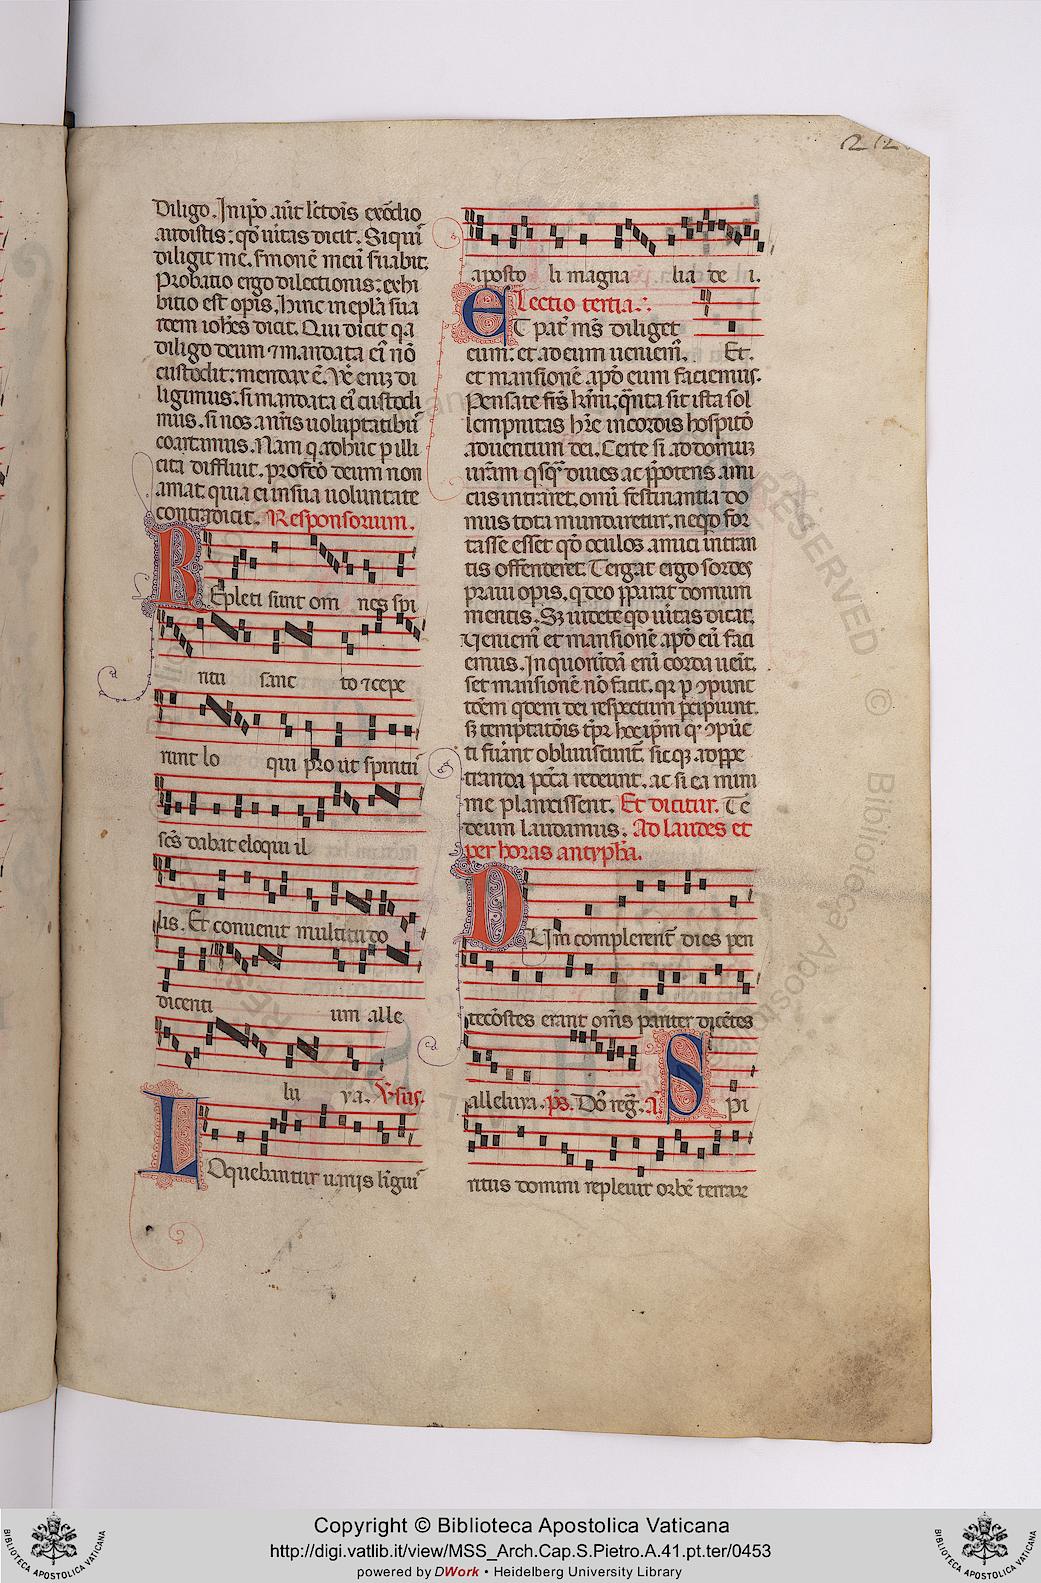 212
Diligo. In ip̄o aūt lc̄tōis exordio
audistis: qd̄ ueritas dicit. Siquis
diligit me. sermonē meū seruabit.
Probatio ergo dilectionis: exhi
bitio est opis. Hinc in epl̄a sua
idem ioh̄es dicit. Qui dicit qa
diligo deum ⁊ mandata ei nō
custodit: mendax ē. Ve eniz di
ligimus: si mandata ei custodi
mus. si nos a nr̄is uoluptatibus
coartamus. Nam q adhuc p illi
cita diffluit. profcō deum non
amat quia ei insua uoluntate
contradicit. Responsorium.
Repleti sunt om nes spi
ritu sanc to ⁊cepe
runt lo qui pro ut spiritus
scs̄ dabat eloqui il
lis. Et conuenit multitudo
dicenti um alle
lu ya. V̄sus.
Loquebantur uarijs linguis
aposto li magna lia de i.
Lectio tertia.
Et pat̄ ms̄ diliget
eum: et ad eum ueniem̄. Et.
et mansionē apd̄ eum faciemus.
Pensate frs̄ kmi: qnta sit ista sol
lempnitas hr̄e in cordis hospitō
aduentum dei. Certe si ad domuz
ur̄am qsq̄ diues ac p̄potens ami
cus intraret. omi festinantia do
mus tota mundaretur. ne qd̄ for
tasse esset qd̄ oculos amici intran
tis offenderet. Tergat ergo sordes
praui opis. q deo p̄parat domum
mentis. Sz uidete qd̄ ueritas dicat.
Veniem̄ et mansionē apd̄ eū faci
emus. In quorūdā enī corda uenit.
set mansionē nō facit. qr p ↄpunc
tōem qdem dei respectum pcipiunt.
s̄ temptatōis tp̄r hoc ip̄m qͦ ↄpūc
ti fuerant obliuiscunt̄. sicqz ad ppe
tranda pcc̄a redeunt. ac si ea mini
me planxissent. Et dicitur. Te
deum laudamus. Ad laudes et
per horas antyph̄a.
Dum complerent̄ dies pen
tecostes erant om̄s pariter dicētes
alleluya. ps̄. Dn̄s reg̃. a. Spi
ritus domini repleuit orbē terrar
RESERVED © Biblioteca Apostolica
Copyright © Biblioteca Apostolica Vaticana
http://digi.vatlib.it/view/MSS_Arch.Cap.S.Pietro.A.41.pt.ter/0453
powered by DWork • Heidelberg University Library
BIBLIOTECA APOSTOLICA VATICANA
BIBLIOTECA APOSTOLICA VATICANA